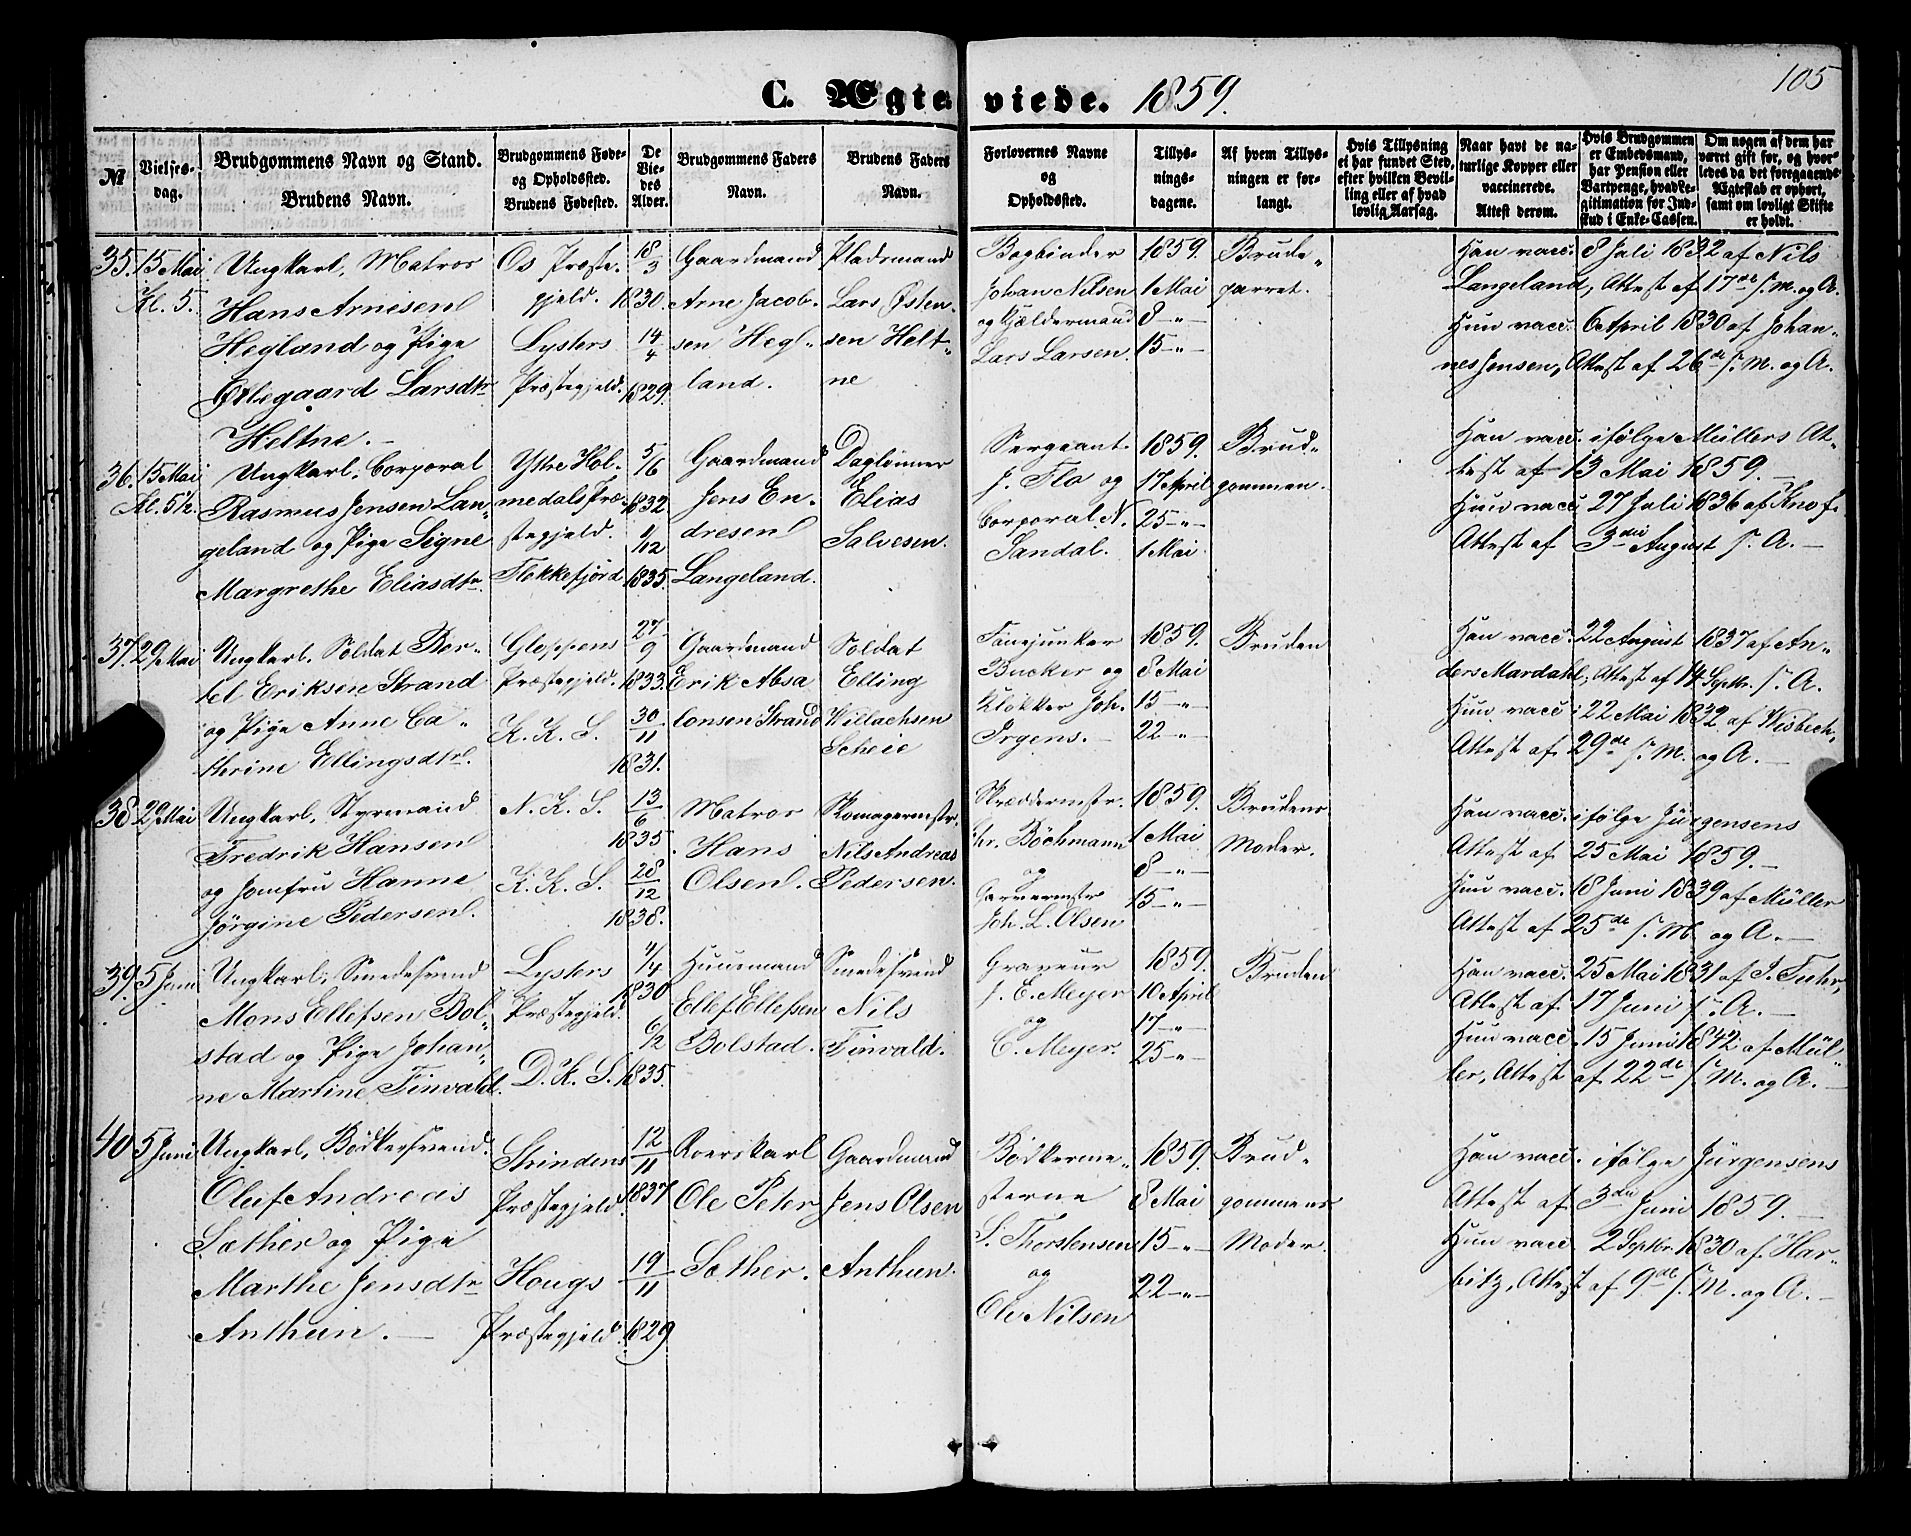 105
C. Ægteviede. 1859.
№
Vielsesdag.
Brudgommens Navn og Stand.
Brudens Navn.
Brudgommens Føde-
og Opholdssted.
Brudens Fødested.
De
Vie-
des
Alder.
Brudgommens Faders
Navn.
Brudens Faders
Navn.
Forlovernes Navne
og
Opholdssted.
Tillys-
nings-
dagene.
Af hvem Tillys-
ningen er for-
langt.
Hvis Tillysning
ei har fundet Sted,
efter hvilken Bevil-
ling eller af hvad
lovlig Aarsag.
Naar havt de na-
turlige Kopper eller
vaccinerede.
Attest derom.
Hvis Brudgommen
er Embedsmand,
har Pension eller
Vartpenge, hvad Le-
gitimation for Ind-
skud i Enke-Cassen.
Om nogen af dem har
været gift før, og hvor-
ledes da det foregaaende
Ægteskab er ophørt,
samt om lovligt Skifte
er holdt.
35.
15 Mai
Kl. 5.
Ungkarl, Matros
Hans Arnesen
Hegland og Pige
Øllegaard Larsdtr
Heltne.
Os Præste-
gjeld.
Lysters
Præstegjeld.
18/3
1830.
14/4
1829.
Gaardmand
Arne Jacob-
sen Heg-
land.
Pladsmand
Lars Østen-
sen Helt-
ne
Bogbinder
Johan Nilsen
og Kjeldermand
Lars Larsen.
1859.
1 Mai
8 -"-
15 -"-
Brude-
parret.
Han vacc. 8 Juli 1832 af Nils
Langeland, Attest af 17de s. M. og A.
Hun vacc. 6 April 1830 af Johan-
nes Jensen, Attest af 26de s. M. og A.
36.
15 Mai
Kl. 5½.
Ungkarl, Corporal
Rasmus Jensen Lan-
geland og Pige Signe
Margrethe Eliasdtr.
Ytre Hol-
medals Præ-
stegjeld.
Flekkefjord
5/6
1832
1/12
1835.
Gaardmand
Jens En-
dresen
Langeland.
Dagleiner
Elias
Salvesen.
Sergeant
J. Flo og
Corporal N.
Sandal.
1859.
17 April
25 -"-
1 Mai
Brud-
gommen.
Han vacc. ifølge Müllers At-
test af 13 Mai 1859.
Hun vacc. 27 Juli 1836 af Knof.
Attest af 3die August s. A.
37.
29 Mai
Ungkarl, Soldat Ber-
tel Eriksen Strand
og Pige Anne Ca-
thrine Ellingsdtr.
Gloppens
Præstegjeld.
K. K. S.
27/9
1833.
30/11
1831.
Gaardmand
Erik Absa
lonsen Strand
Soldat
Elling
Willachsen
Scheie
Fanejunker
Bucker og
Klokker Joh.
Irgens.
1859.
8 Mai
15 -"-
22 -"-
Bruden
Han vacc. 22 August 1837 af An-
ders Mardahl, Attest af 14 Septbr. s. A.
Hun vacc. 22 Mai 1832 af Wisbech,
Attest af 29de s. M. og A.
38.
29 Mai
Ungkarl, Styrmand
Fredrik Hansen
og Jomfru Hanne
Jørgine Pedersen.
N. K. S.
K. K. S.
13/6
1835.
28/12
1838.
Matros
Hans
Olsen.
Skomagermstr.
Nils Andreas
Pedersen.
Skræddermstr.
Chr. Böchmann
og
Garvermstr
Joh. L. Olsen
1859.
1 Mai
8 -"-
15 -"-
Brudens
Moder.
Han vacc. ifølge Jürgensens
Attest af 25 Mai 1859.
Hun vacc. 18 Juni 1839 af Müller
Attest af 25de s. M. og A.
39.
5 Juni
Ungkarl, Smedesvend
Mons Ellefsen Bol-
stad og Pige Johan-
ne Martine Finvald.
Lysters
Præstegjeld.
D. K. S.
4/4
1830
6/2
1835.
Huusmand
Ellef Ellefsen
Bolstad.
Smedesvend
Nils
Finvald.
Graveur
J. E. Meyer
og
C. Meyer.
1859.
10 April
17 -"-
25 -"-
Bruden
Han vacc. 25 Mai 1831 af P. Fuhr,
Attest af 17 Juni s. A.
Hun vacc. 15 Juni 1842 af Mül-
ler, Attest af 22de s. M. og A.
40
5 Juni
Ungkarl, Bødkersvend
Oluf Andreas
Sæther og Pige
Marthe Jensdtr
Anthun.
Strindens
Præstegjeld.
Hougs
Præstegjeld.
12/11
1837
19/11
1829
Roerskarl
Ole Peter
Sæther.
Gaardmand
Jens Olsen
Anthun.
Bødkerme-
sterne
S. Thorstensen
og
Ole Nilsen
1859.
8 Mai
15 -"-
22 -"-
Brud-
gommens
Moder.
Han vacc. ifølge Jürgensens
Attest af 3die Juni 1859.
Hun vacc. 2 Septbr. 1830 af Har-
bitz, Attest af 9de s. M. og A.